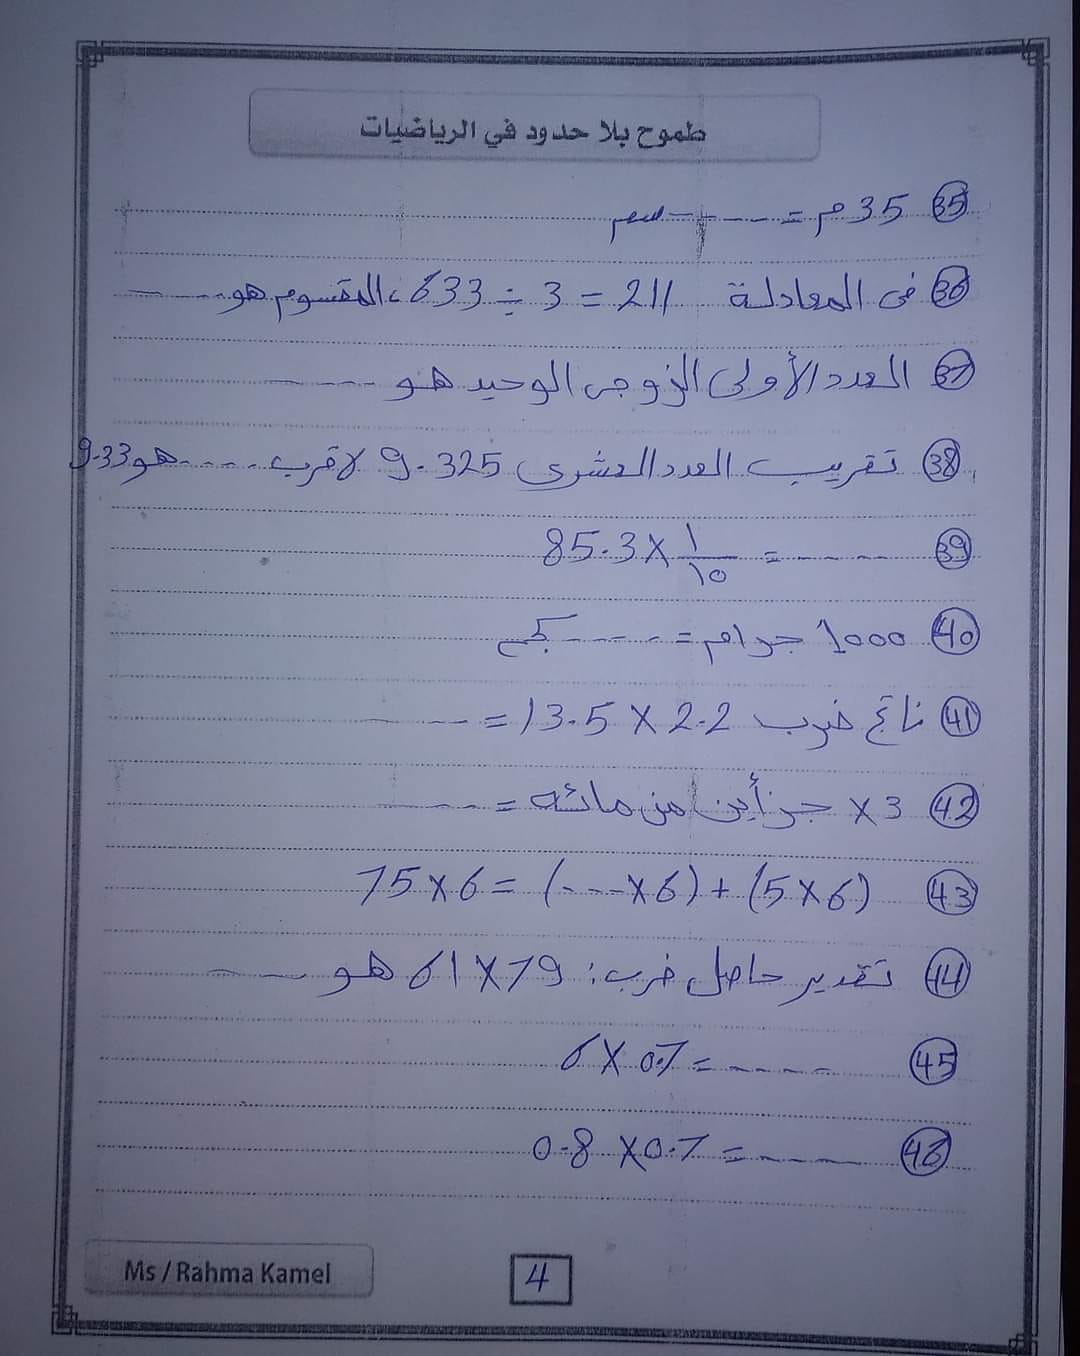 طموح بلا حدود في الرياضيات
35 35 م = ---- سم
36 فى المعادلة 633 ÷ 3 = 211 ، المقسوم هو ----
37 العدد الأولى الزوجى الوحيد هو ----
38 تقريب العدد العشرى 9.325 لاقرب ---- هو 9.33
39 85.3 × 1/10 = ----
40 1000 جرام = ---- كجم
41 ناتج ضرب 13.5 × 2.2 = ----
42 3 × جزأين من مائه = ----
43 75 × 6 = (--- × 6) + (5 × 6)
44 تقدير حاصل ضرب : 61 × 79 هو ----
45 6 × 0.7 = ----
46 0.8 × 0.7 = ----
Ms / Rahma Kamel
4